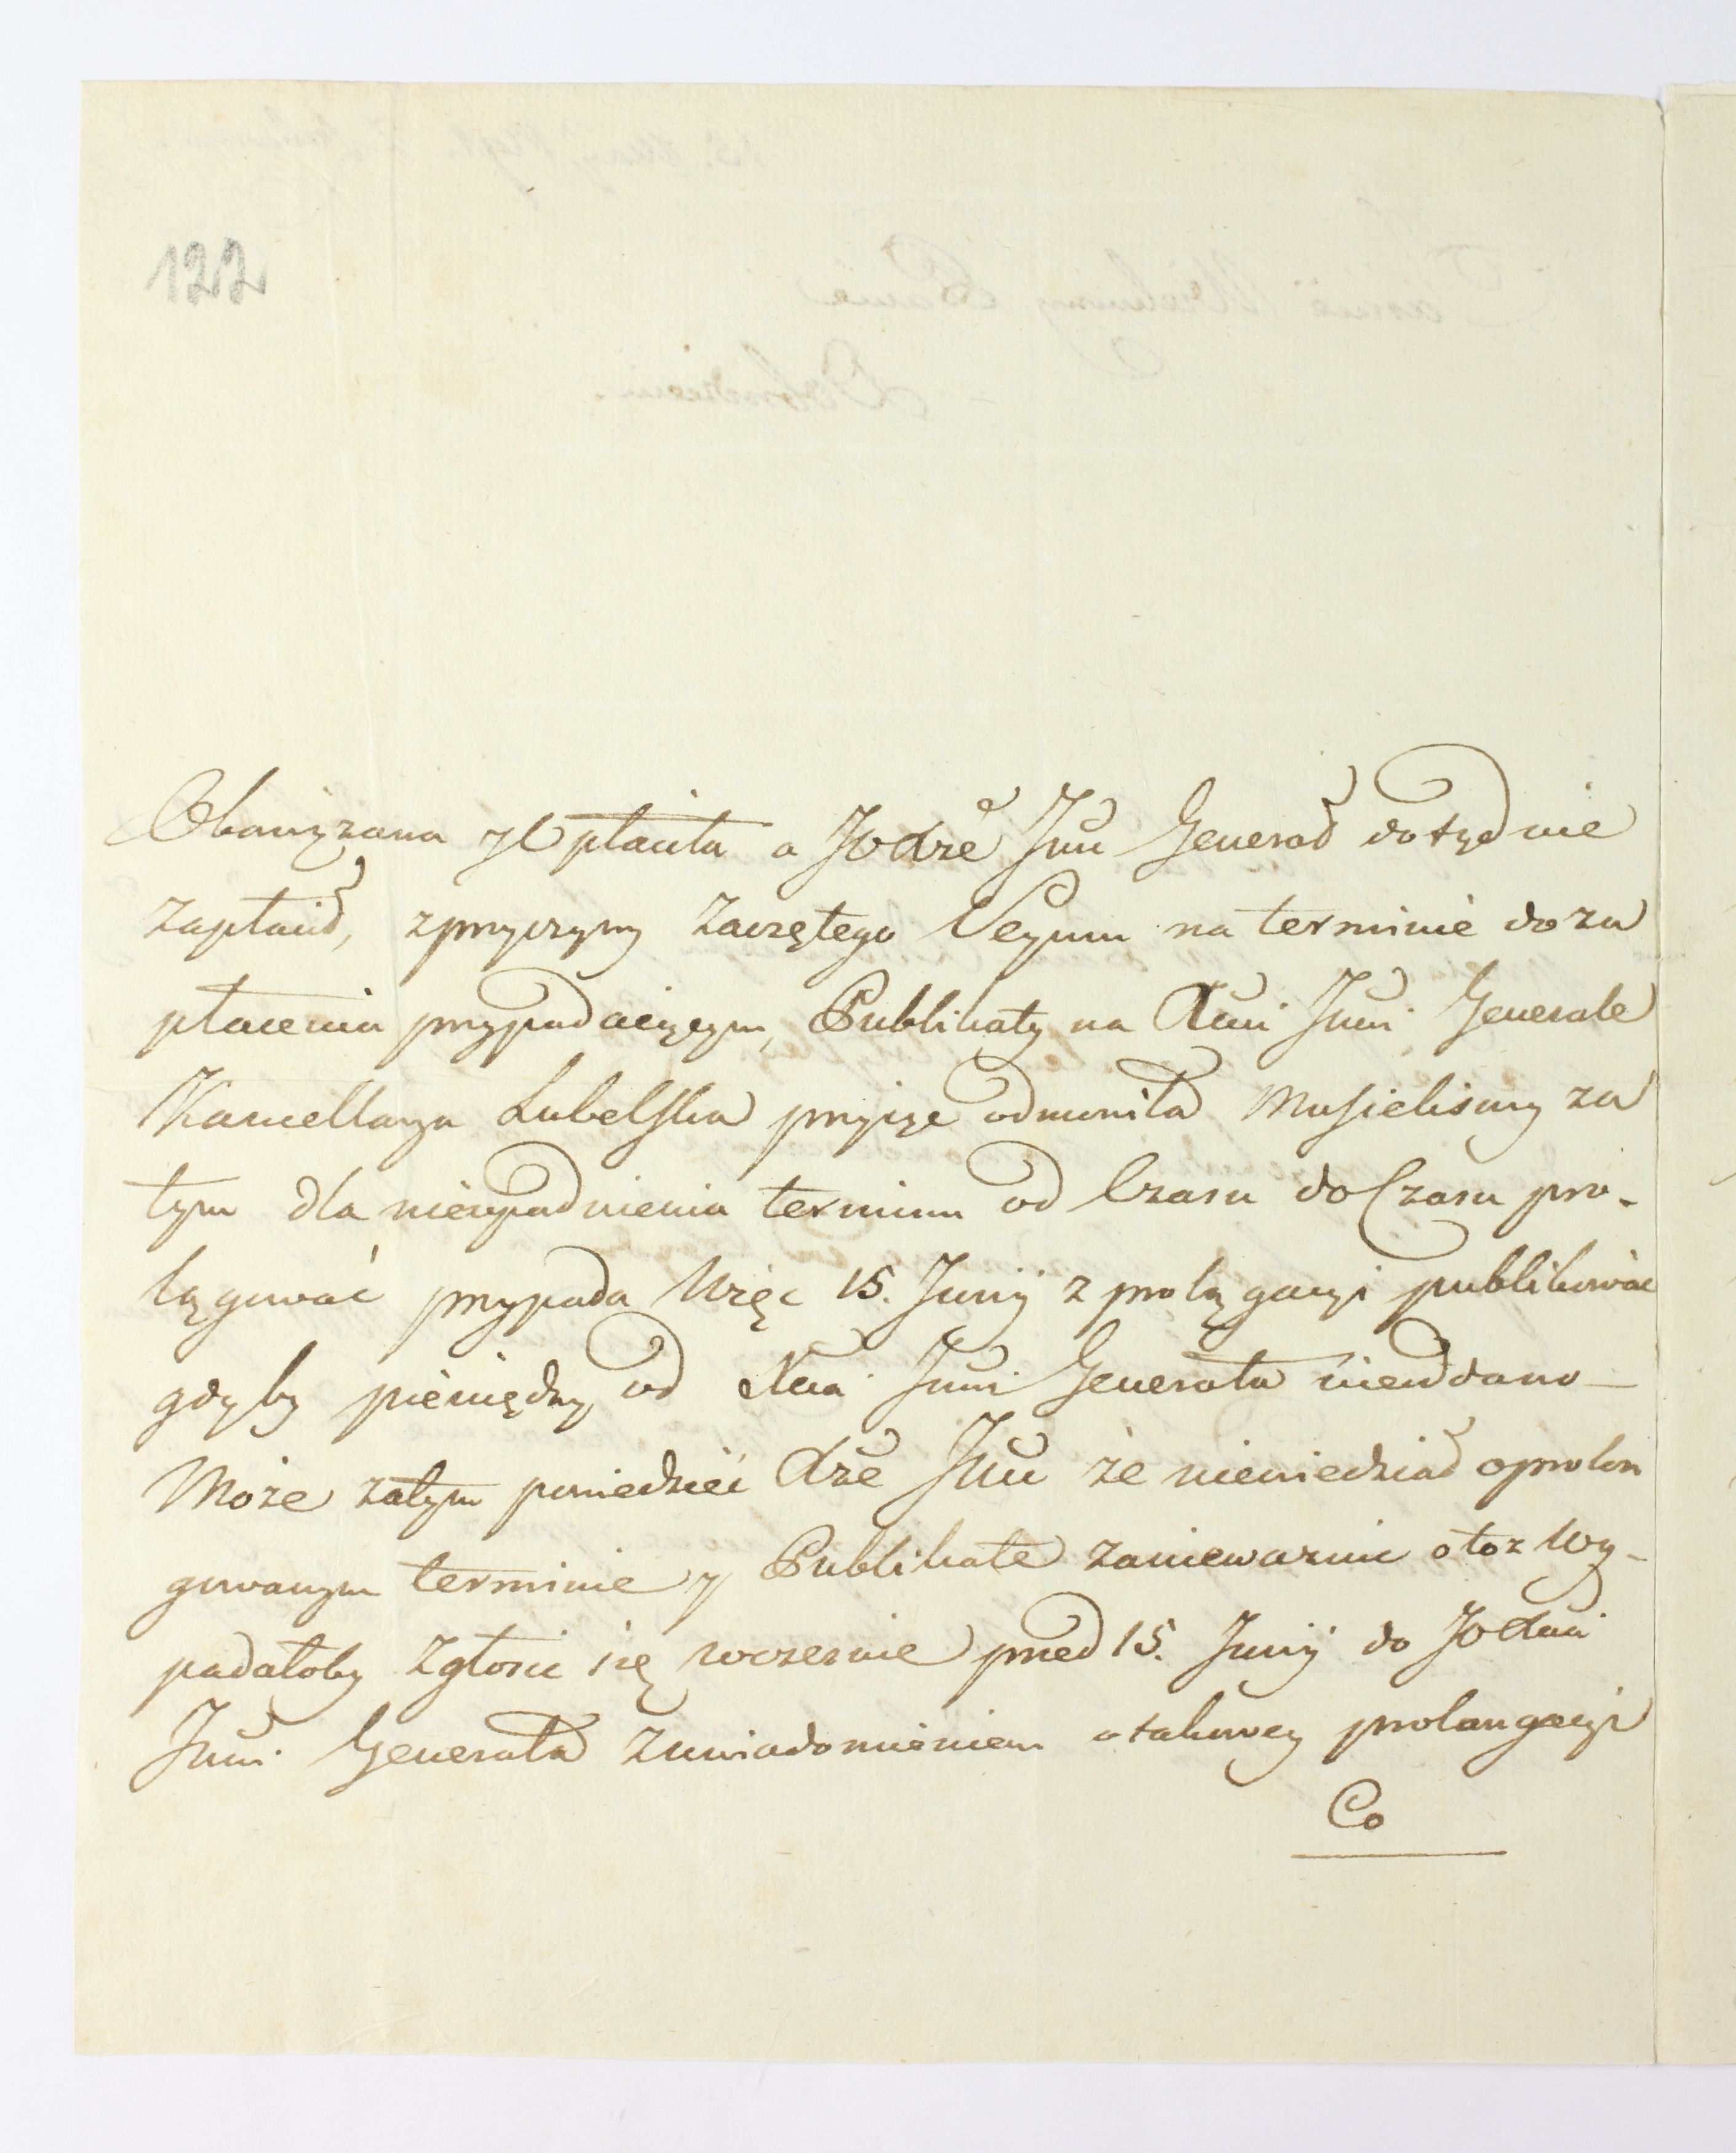 122
Obowiązana wpłaciła a JW Dze Jmć Generał dotąd nie
zapłacił, z przyczyny zaczętego na terminie do za
płacenia przypadaiącym, Publikaty na Jmci Generale
Kancellarya Lubelska przyiąc odmuwiła Musieliśmy za
tym dla nieupadnienia terminu od Czasu do Czasu pro-
lągować przypada Więc 15. Junij z prolągacyi publikować
gdyby pieniędzy od Jmci Generała nieoddano —
Może zatym powiedzieć Dze Jmć że niewiedział o prolon
gowanym terminie y Publikate zaniewaznic otoz Wy-
padałoby zgłosic się wczesnie przed 15. Junij do JW
Jmci Generała z uwiadomieniem o takowey prolangacyi
Co